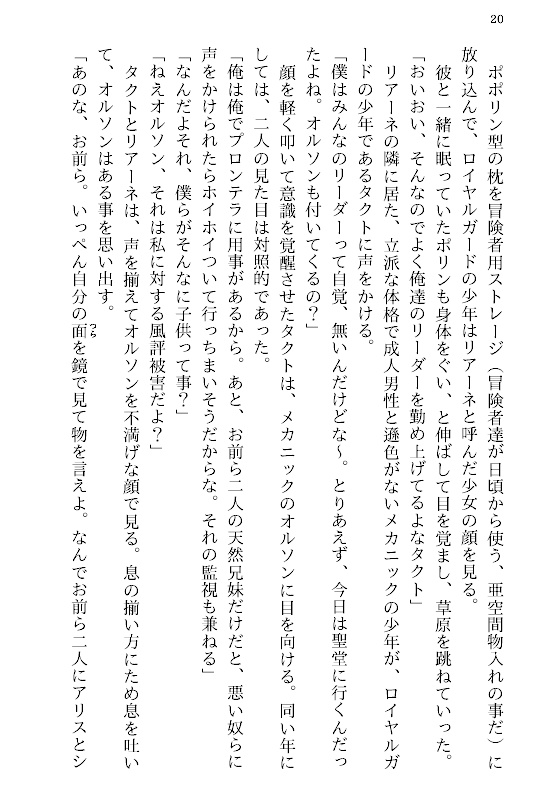 20
ポポリン型の枕を冒険者用ストレージ（冒険者達が日頃から使う、亜空間物入れの事だ）に
放り込んで、ロイヤルガードの少年はリアーネと呼んだ少女の顔を見る。
彼と一緒に眠っていたポリンも身体をぐい、と伸ばして目を覚まし、草原を跳ねていった。
「おいおい、そんなのでよく俺達のリーダーを勤め上げてるよなタクト」
リアーネの隣に居た、立派な体格で成人男性と遜色がないメカニックの少年が、ロイヤルガ
ードの少年であるタクトに声をかける。
「僕はみんなのリーダーって自覚、無いんだけどな～。とりあえず、今日は聖堂に行くんだっ
たよね。オルソンも付いてくるの？」
顔を軽く叩いて意識を覚醒させたタクトは、メカニックのオルソンに目を向ける。同い年に
しては、二人の見た目は対照的であった。
「俺は俺でプロンテラに用事があるから。あと、お前ら二人の天然兄妹だけだと、悪い奴らに
声をかけられたらホイホイついて行っちまいそうだからな。それの監視も兼ねる」
「なんだよそれ、僕らがそんなに子供って事？」
「ねえオルソン、それは私に対する風評被害だよ？」
タクトとリアーネは、声を揃えてオルソンを不満げな顔で見る。息の揃い方にため息を吐い
て、オルソンはある事を思い出す。
「あのな、お前ら。いっぺん自分の面つらを鏡で見て物を言えよ。なんでお前ら二人にアリスとシ